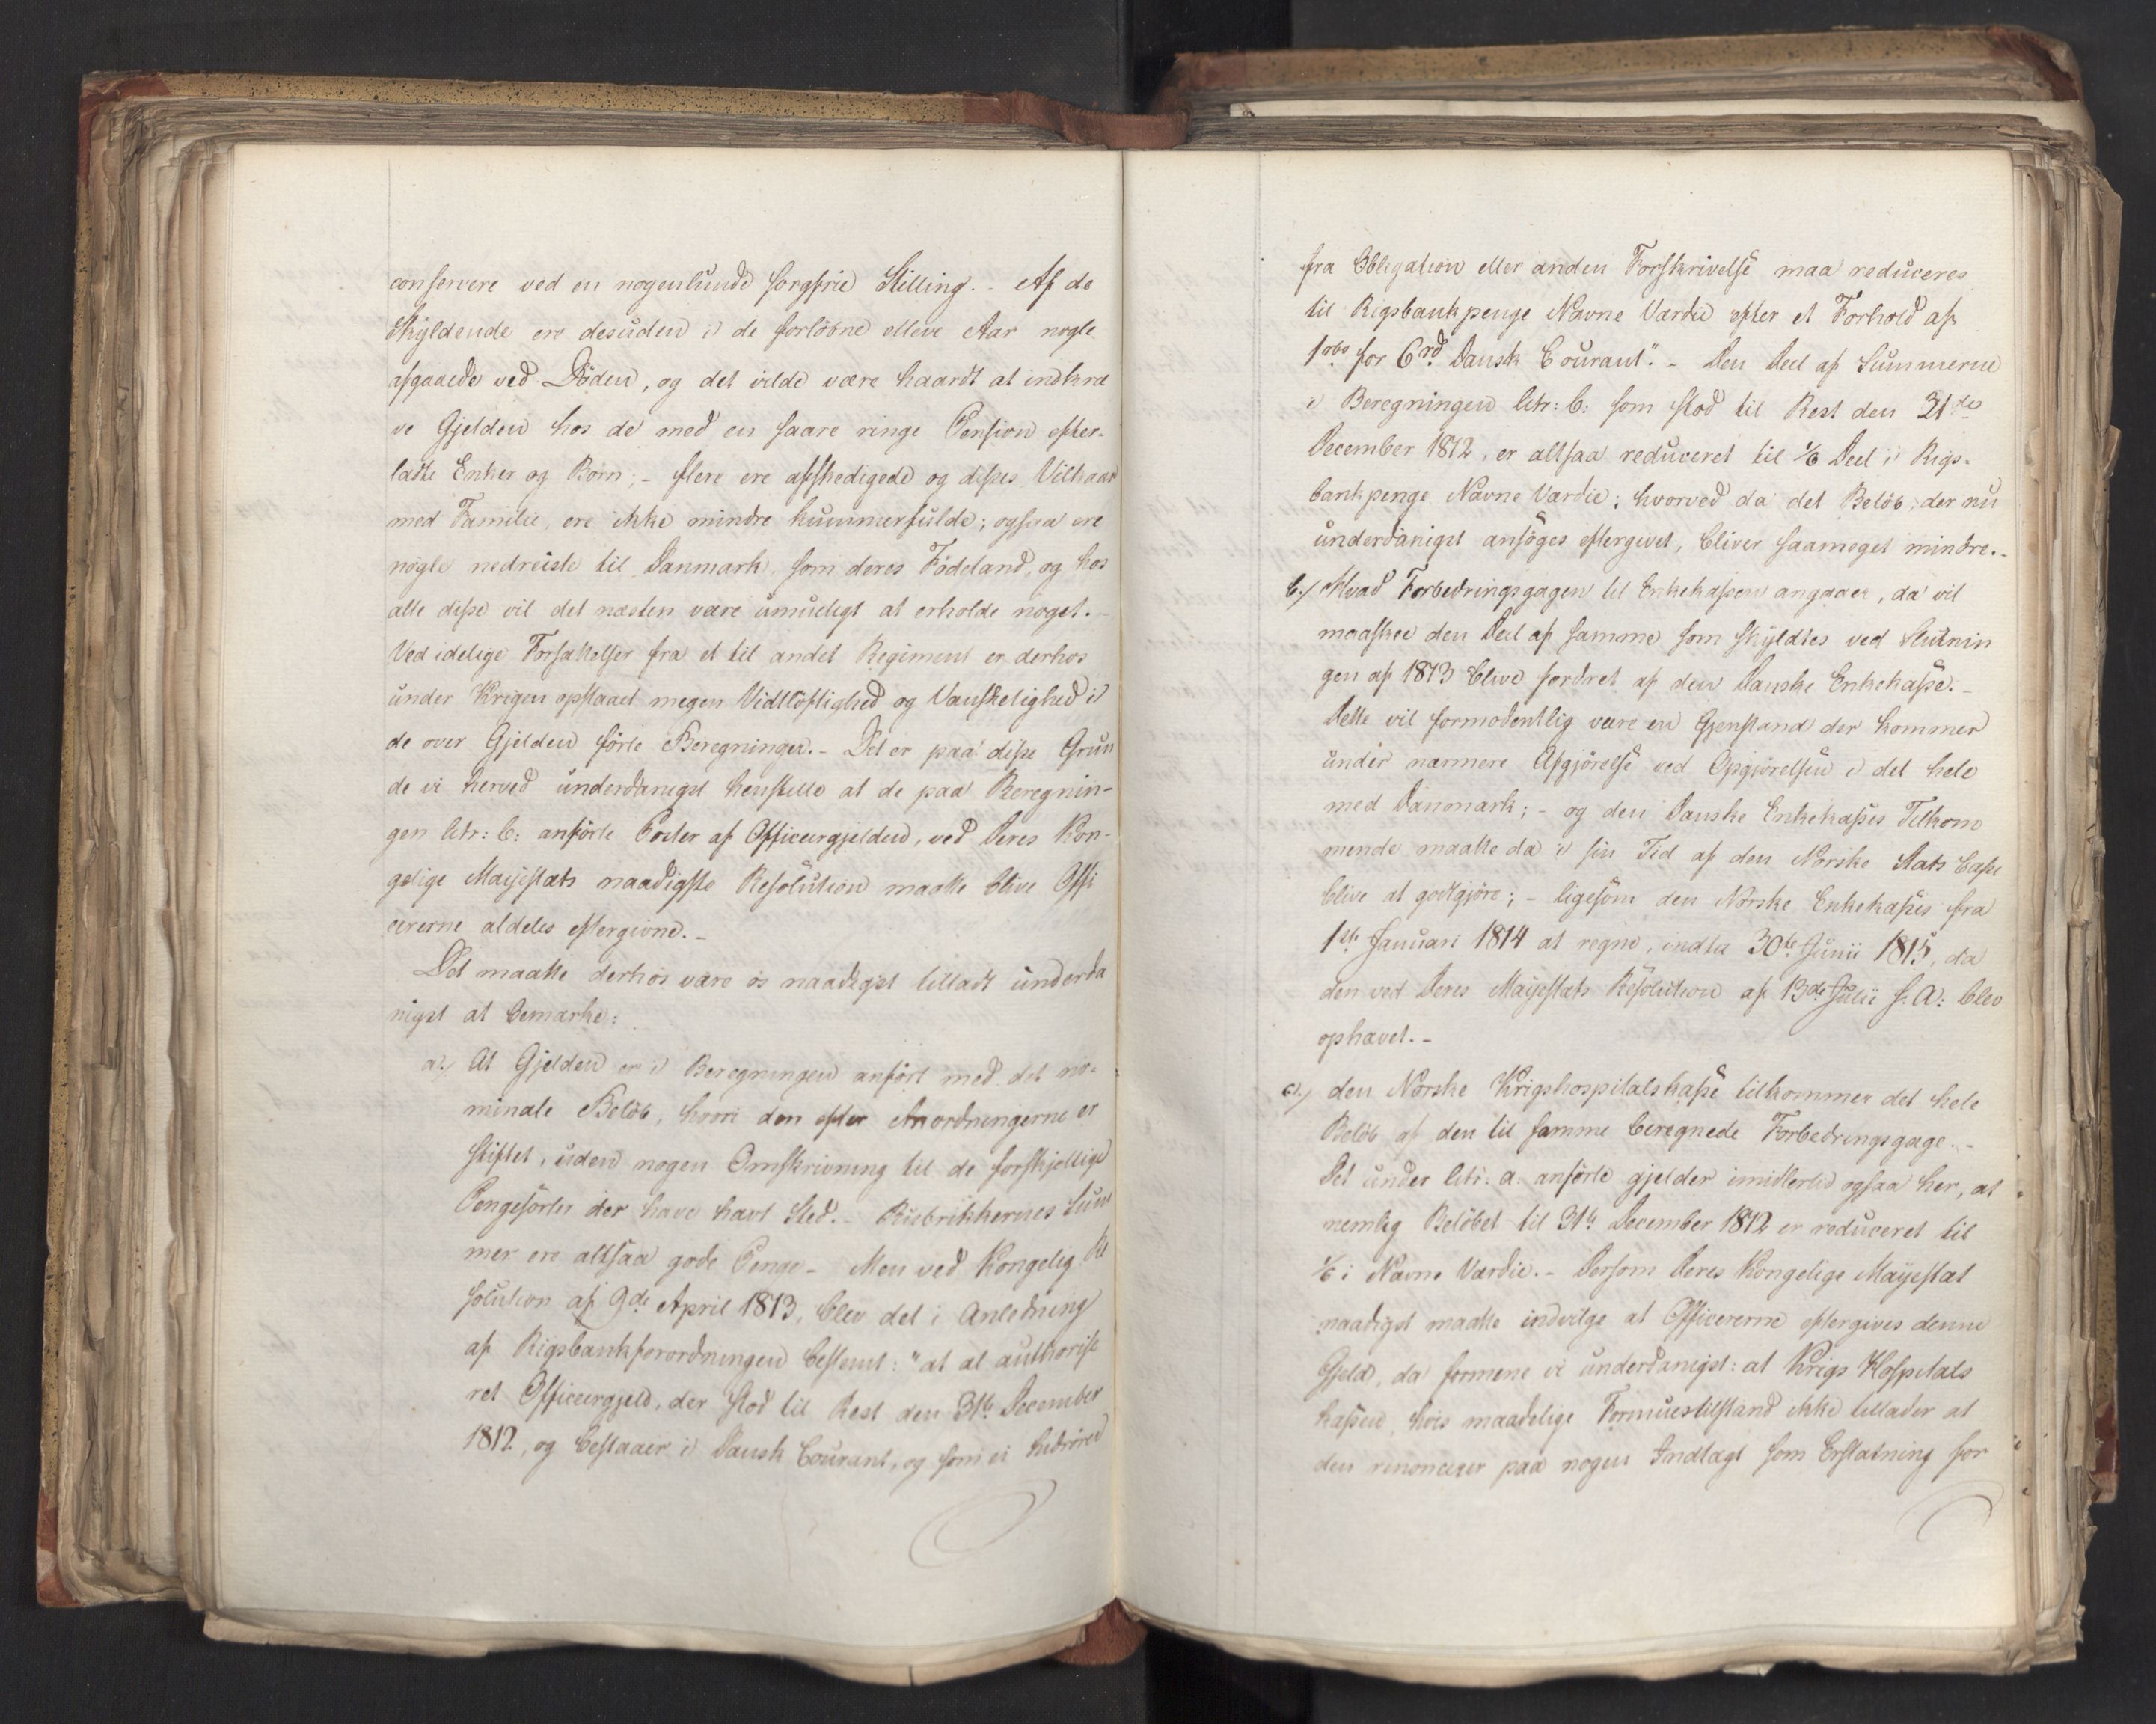 conservere ved en nogenlunde sorgfrie Stilling. - Af de
Skyldende ere desuden i de forløbne elleve Aar nogle
afgaaede ved Døden, og det vilde være haardt at indkræ
ve Gjelden hos de med en saare ringe Pension efter-
ladte Enker og Børn; - flere ere afskedigede og disses Vilkaar
med Familie, ere ikke mindre kummerfulde; ogsaa ere
nogle nedreiste til Danmark, som deres Fødeland, og hos
alle disse vil det næsten være umueligt at erholde noget. -
Ved idelige Forsættelser fra et til andet Regiment er derhos
under Krigen opstaaet megen Vidtløftighed og Vanskelighed i
de over Gjelden førte Beregninger. - Det er paa disse Grun
de vi herved underdanigst henstille at de paa Beregnin-
gen litr: b: anførte Poster af Officeergjelden, ved Deres Kon-
gelige Majestæts naadigste Resolution maatte blive Offi
cererne aldeles eftergivne. -
Det maatte derhos være os naadigst tilladt underda
nigst at bemærke:
a./ At Gjelden er i Beregningen anført med det no-
minale Beløb, hvori den efter Anordningerne er
stiftet, uden nogen Omskrivning til de forskjellige
Pengesorter der have havt Sted. - Rubrikkernes Sum
mer ere altsaa gode Penge - Men ved Kongelig Re
solution af 9de April 1813, blev det i Anledning
af Rigsbankforordningen bestemt: "at al authorise
ret Officeergjeld, der stod til Rest den 31te December
1812, og bestaaer i Dansk Courant, og som ei hidrører
fra Obligation eller anden Forskrivelse maa reduceres
til Rigsbankpenge Navne Værdie efter et Forhold af
1 rbd for 6 rd Dansk Courant". - Den Deel af Summerne
i Beregningen litr: b: som stod til Rest den 31te
December 1812, er altsaa reduceret til 1/6 Deel i Rigs-
bankpenge Navne Værdie; hvorved da det Beløb, der nu
underdanigst ansøges eftergivet, bliver saameget mindre. -
b./ Hvad Forbedringsgagen til Enkekassen angaaer, da vil
maaskee den Deel af samme som skyldtes ved Slutnin
gen af 1813 blive fordret af den Danske Enkekasse. -
Dette vil formodentlig være en Gjenstand der kommer
under nærmere Afgjørelse ved Opgjørelsen i det hele
med Danmark; - og den Danske Enkekasses Tilkom
mende maatte da i sin Tid af den Norske Stats Casse
blive at godtgjøre; - ligesom den Norske Enkekasses fra
1ste Januari 1814 at regne, indtil 30te Junii 1815, da
den ved Deres Majestæts Resolution af 13de Julii s: A: blev
ophævet. -
c./ den Norske Krigshospitalskasse tilkommer det hele
Beløb af den til samme beregnede Forbedringsgage. -
Det under litr: a: anførte gjelder imidlertid ogsaa her, at
nemlig Beløbet til 31te December 1812 er reduceret til
1/6 i Navne Værdie. - Dersom Deres Kongelige Majestæt
naadigst maatte indvilge at Officererne eftergives denne
Gjeld, da formene vi underdanigst: at Krigs Hospitals
kassen, hvis maadelige Formuestilstand ikke tillader at
den renoncerer paa nogen Indtægt som Erstatning for